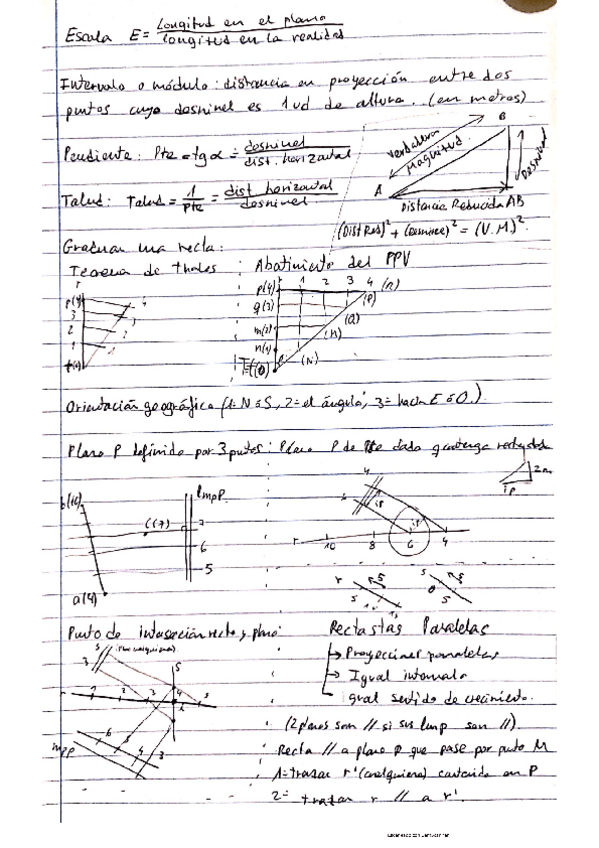 Escala E = Longitud en el plano / Longitud en la realidad
Intervalo o módulo: distancia en proyección entre dos
puntos cuyo desnivel es 1 ud de altura. (en metros)
Pendiente: Pte = tgα = desnivel / dist. horizontal
Talud: Talud = 1/Pte = dist horizontal / desnivel
Verdadera
Magnitud
A
B
Desnivel
Distancia Reducida AB
(Dist Red)² + (Desnivel)² = (V.M)².
Graduar una recta:
Teorema de thales : Abatimiento del PPV
r
p(4)
3
2
1
t(0)
4
3
2
1
p(4) 1 2 3 4 (r)
q(3) (P)
m(2) (Q)
n(1) (M)
(N)
Orientación geográfica (1=N o S, 2=el ángulo, 3=hacia E o O.).
Plano P definido por 3 puntos: Plano P de Pte dada q contenga recta dada
2m
ip
b(10)
c(7)
lmpP
7
6
5
a(4)
r 10 8 6 4
r s
o s
Punto de intersección recta y plano
(Plano cualquiera)
Rectas Paralelas
→ Proyecciones paralelas
→ Igual intervalo
→ Igual sentido de crecimiento.
r 1 2 3 4 5
6 5 4 3
(2 planos son // si sus lmp son //).
Recta // a plano P que pase por punto M
1= trazar r' (cualquiera) contenida en P
2= trazar r // a r'.